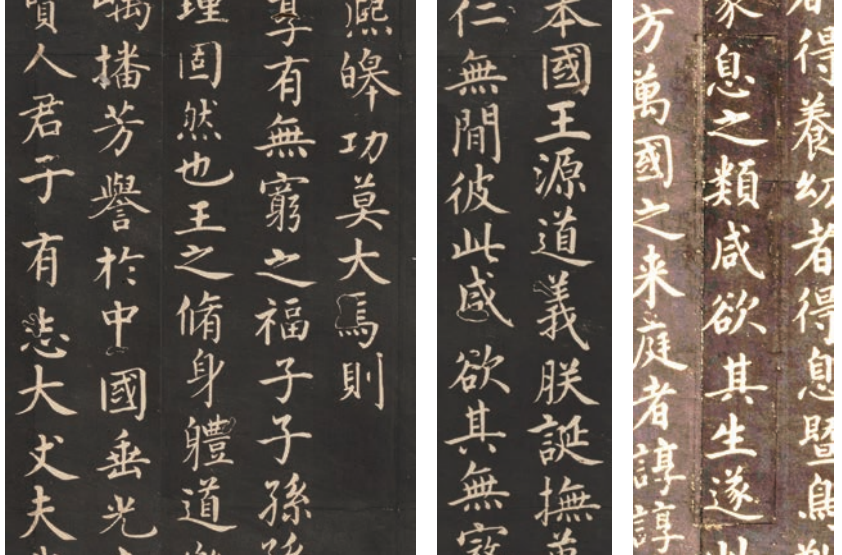 熙皞功莫大焉則
享有無窮之福子子孫
理固然也王之脩身體道
播芳譽於中國垂光
賢人君子有志大丈夫
本國王源道義朕誕撫萬
仁無間彼此咸欲其無
者得養幼者得息暨鳥
息之類咸欲其生遂
方萬國之来庭者諄諄